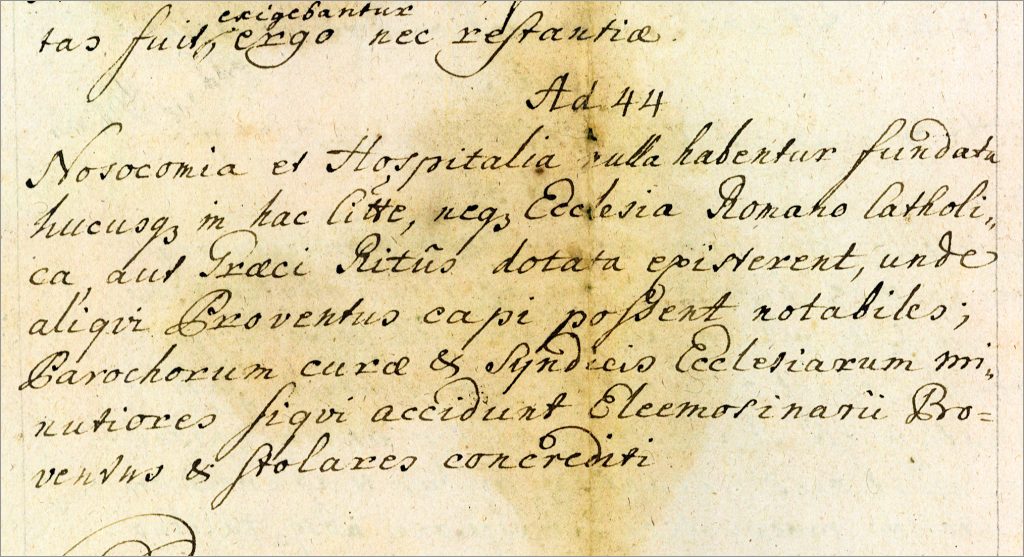 exigebantur
tas fuit, ergo nec restantiæ
Ad 44
Nosocomia et Hospitalia nulla habentur fundata
hucusqȝ in hac Citte, neqȝ Ecclesia Romano Catholi„
ca, aut Græci Ritũs dotata existerent, unde
aliqvi Proventus capi possent notabiles;
Parochorum curæ & Syndicis Ecclesiarum mi„
nutiores siqvi accidunt Eleemosinarii Pro=
ventus & stolares concrediti